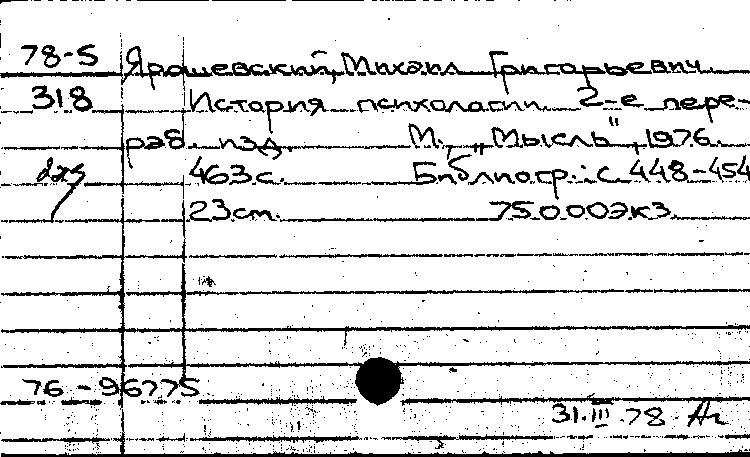 78-5 Ярошевский, Михаил Григорьевич.
318 История психологии. 2-е пере-
раб. изд. М., „Мысль", 1976.
463с. Библиогр.: с. 448-454
23см. 75000экз.
76-96775
31.III.78